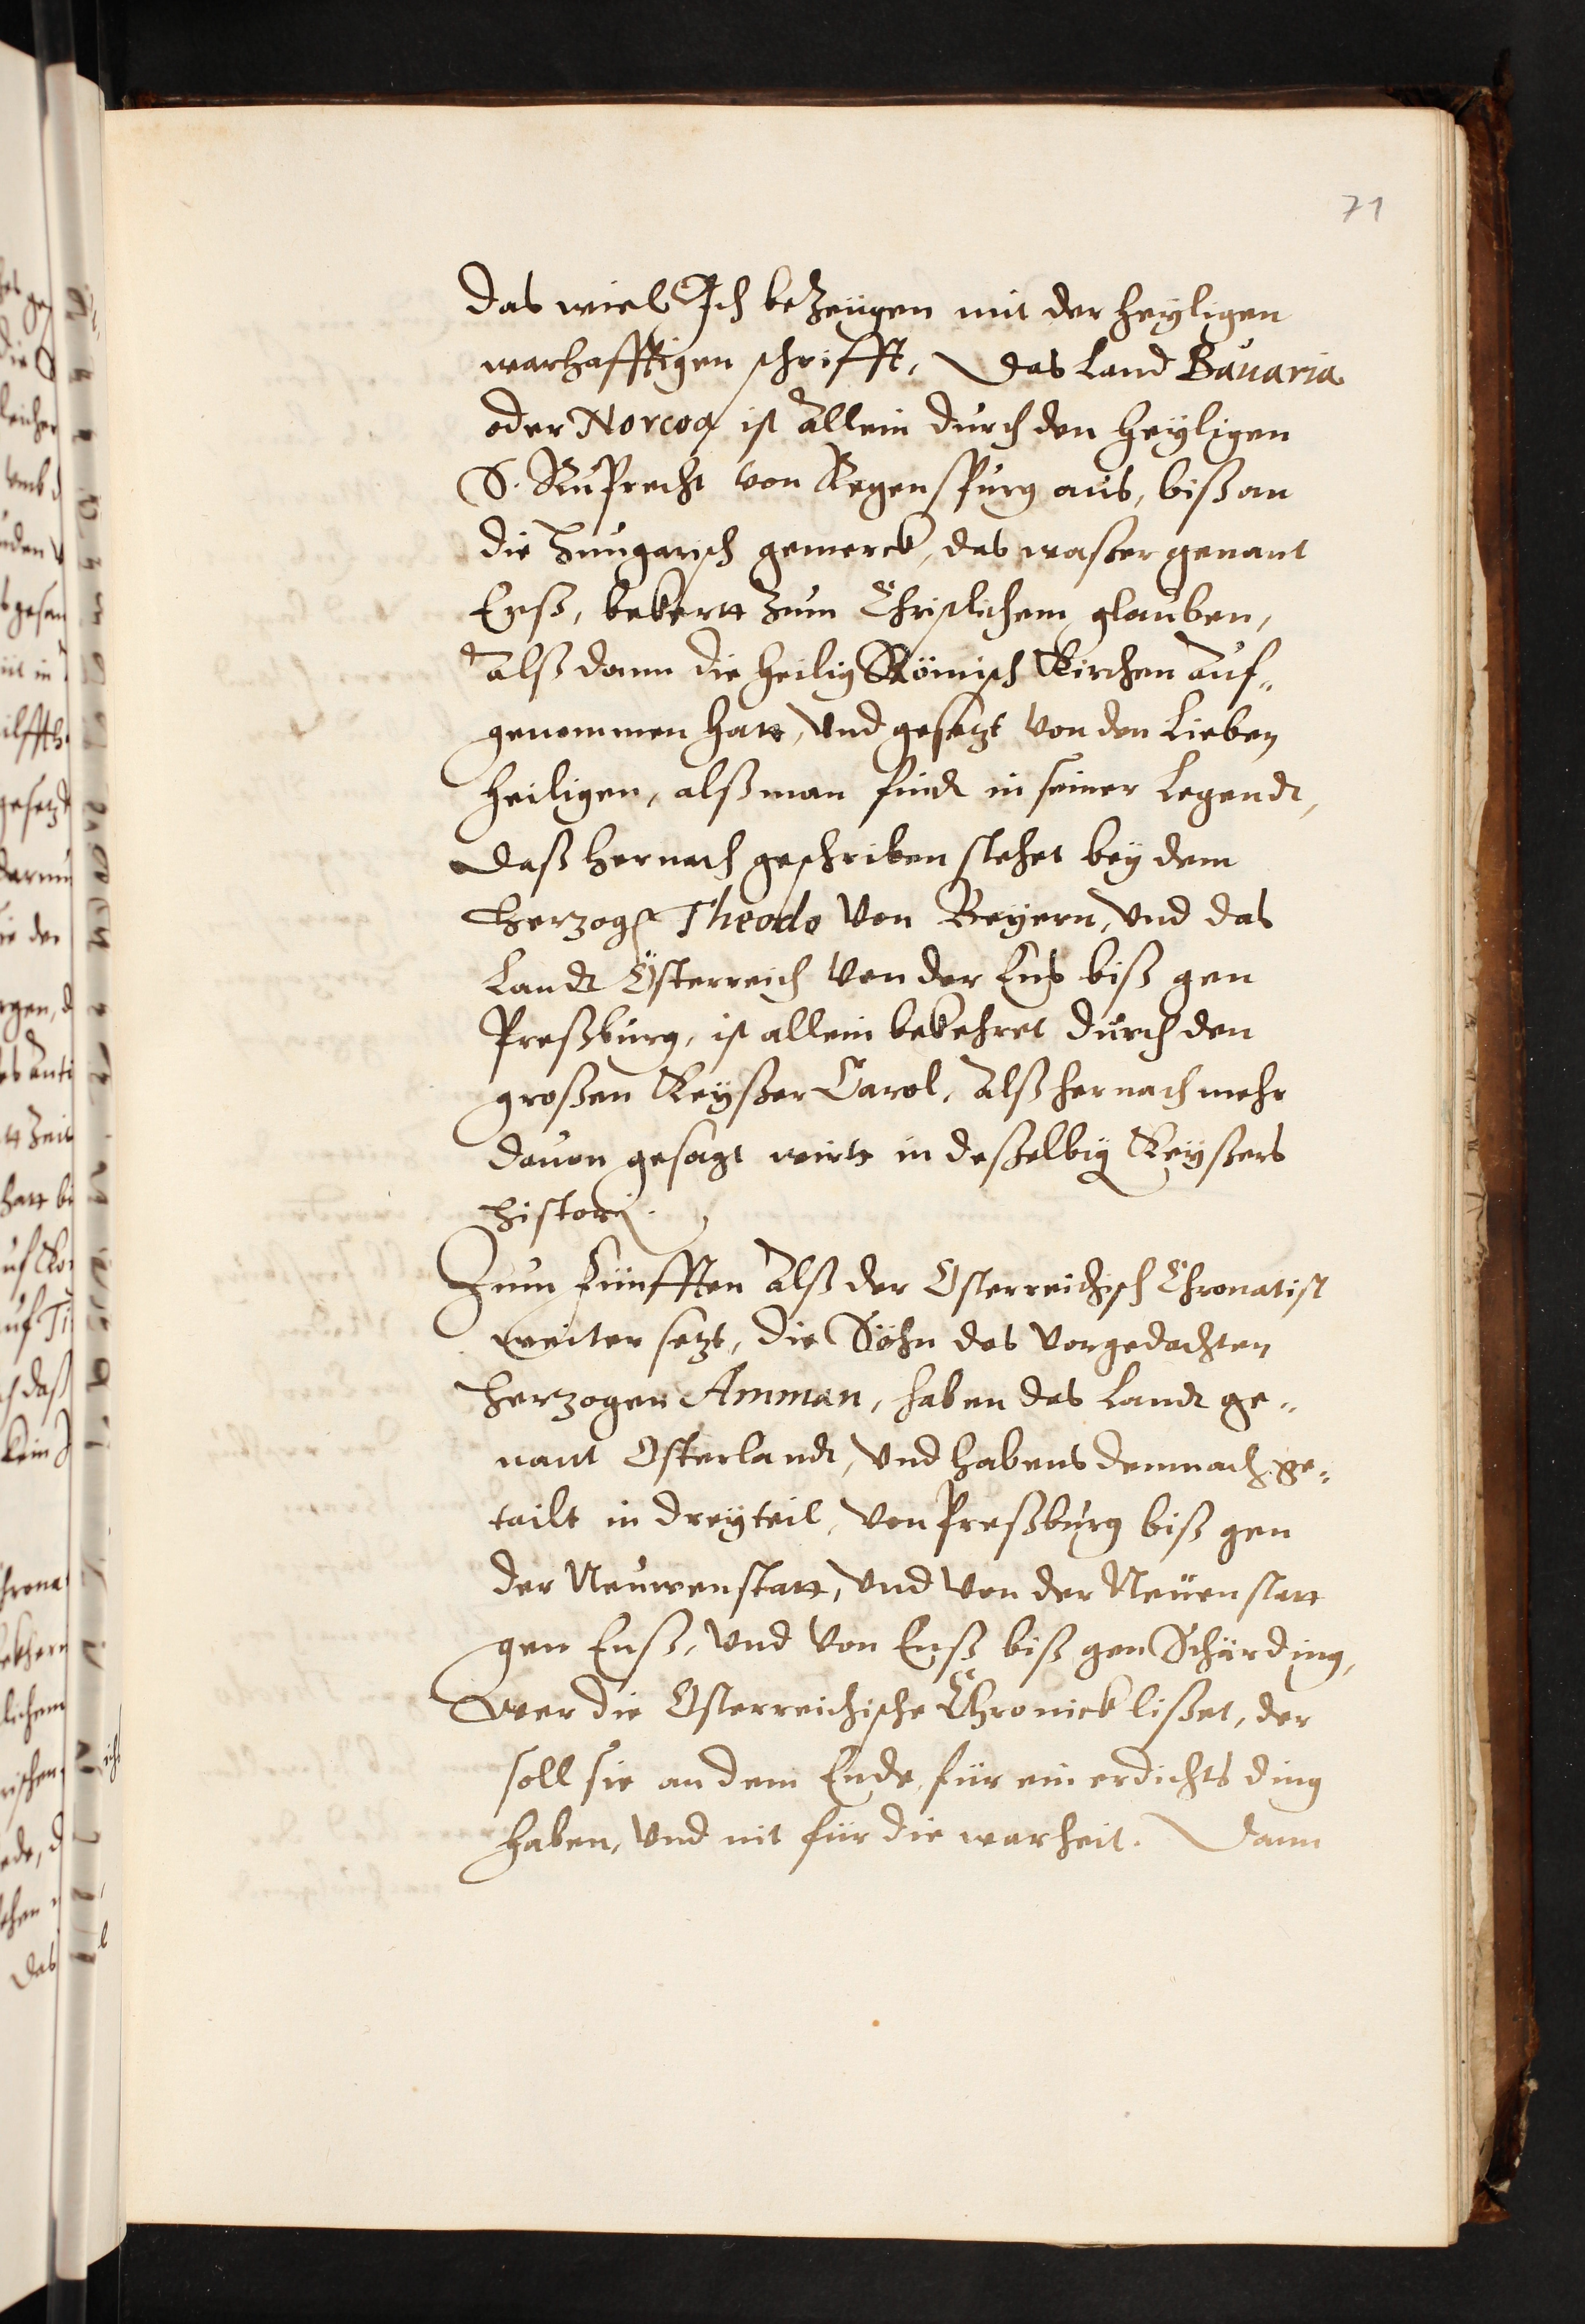 71
das wiel Ich beZeügen mit der heyligen
warhafftigen schrifft, Das Land Bauaria
oder Norcoa ist Allein durch den heyligen
S. Ruprecht von Regenspurg aus, biß an
die Hungarisch gemerck, das waßer genant
Enß, bekertt zum Christlichem glauben,
Alß dann die heilig Römisch Kirchen Auf„
genommen hatt, Vnd gesetzt von den Lieben
heiligen, alß man findt in seiner Legendt,
Daß hernach geschriben stehet bey dem
Herzogen Theodo von Beyern, Vnd das
Landt Österreich von der Ens biß gen
Preßburg, ist allein bekehret durch den
großen Keyßer Carol, Alß hernach mehr
dauon gesagt wirtt in deßelbig Keyßers
Histori.
Zum Fünfften Alß der Osterreichisch Chronatist
weiter setzt, die Söhn des Vorgedachten
Herzogen Amman, haben das Landt ge„
nant Osterlandt, Vnd habens demnach ge„
teilt in drey teil, von Preßburg biß gen
der Neuwenstatt, Vnd von der Neüenstatt
gen Enß, Vnd von Enß biß gen Schärding,
Wer die Osterreichische Chronick lißet, der
soll sie an dem Ende für ein erdichts ding
haben, Vnd nit für die warheit. Dann